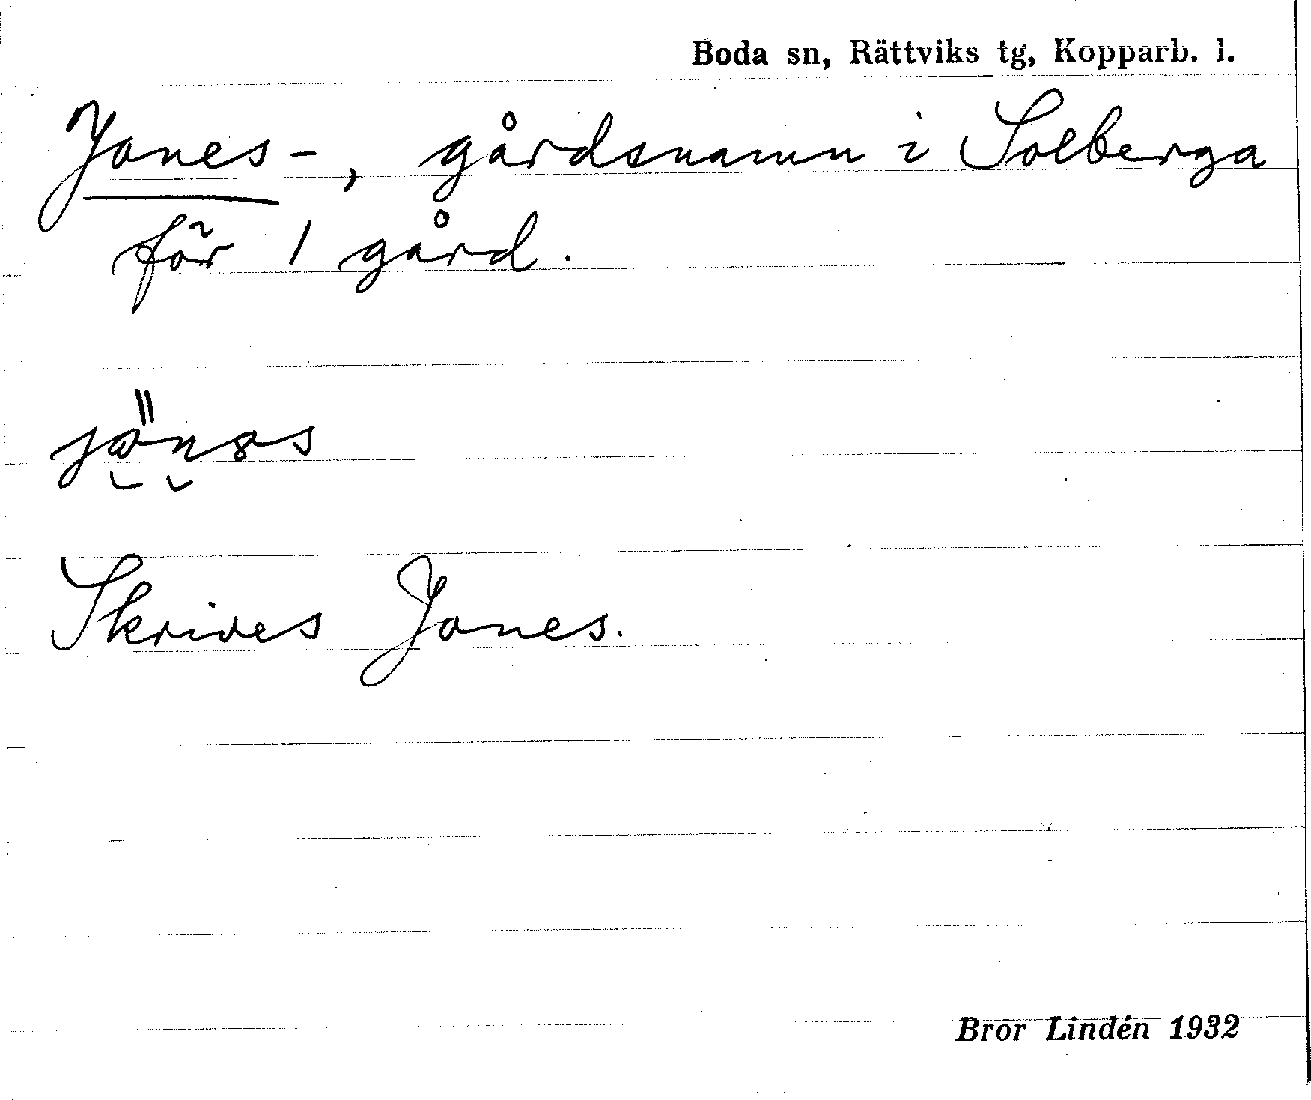 Boda sn, Rättviks tg, Kopparb. l.
Jones-, gårdsnamn i Solberga
för 1 gård.
Skrives Jones.
Bror Lindén 1932